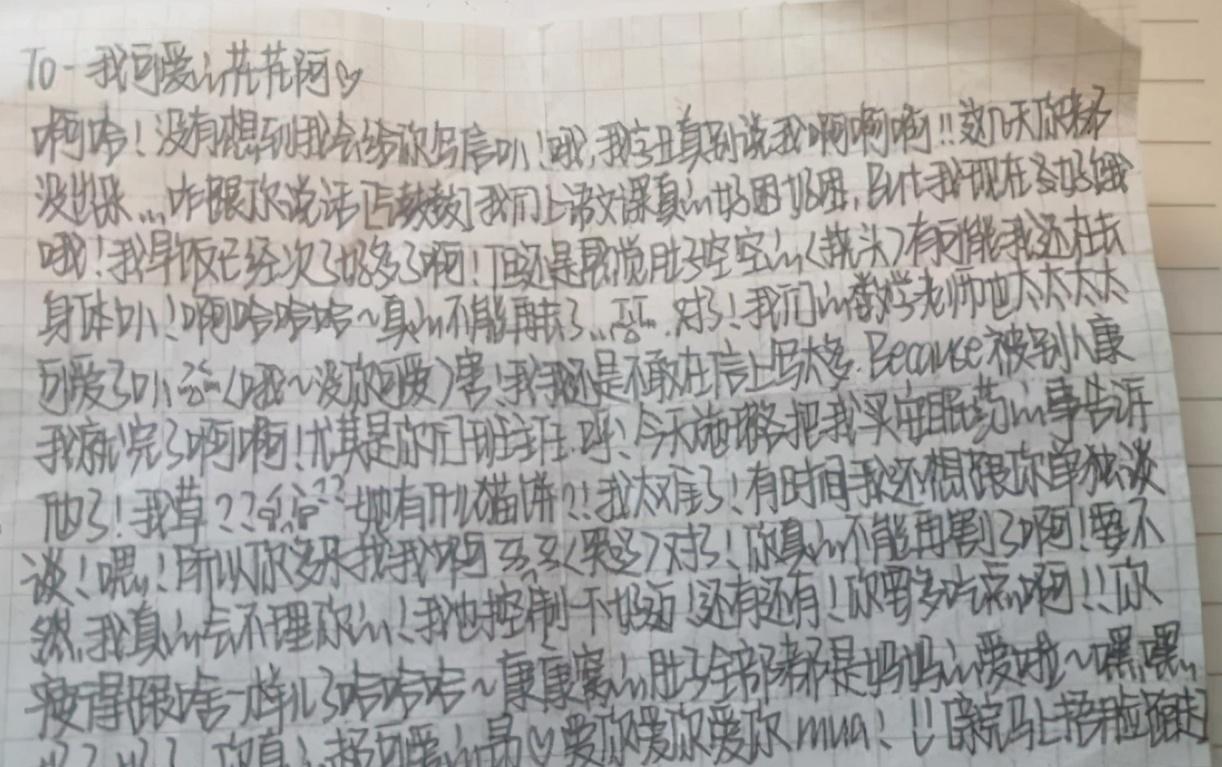 To-我可爱in花花阿♡
啊哈!没有想到我会给你写信叭!哦,我字丑真别说我啊啊啊!!这几天你都
没出来...咋跟你说话[气鼓鼓]我们上语文课真in好困好困,But我现在多好饿
哦!我早饭已经次了好多了啊!但还是感觉肚子空空in(挠头)有可能我还在长
身体叭!啊哈哈哈~真in不能再长了...对了!我们in数学老师也太太太太
可爱了叭(哦~没你可爱)害!我我还是不敢在信上写太多.Because被别人康
我就完了啊啊!尤其是你们班主任.哼!今天她将我买安眠药in事告诉
他了!我草??她有什么猫饼?!我太难了!有时间我还想跟你单独谈
谈!嘿!所以你多来找我啊(哭了)对了!你真in不能再割了啊!要不
然,我真in会不理你in!我也控制一下好叭!还有还有!你要多吃点啊!!你
瘦得跟啥一样儿了哈哈哈~康康in肚子全部都是妈妈in爱啦~嘿嘿
你真in超可爱in♡爱你爱你爱你mua!!!